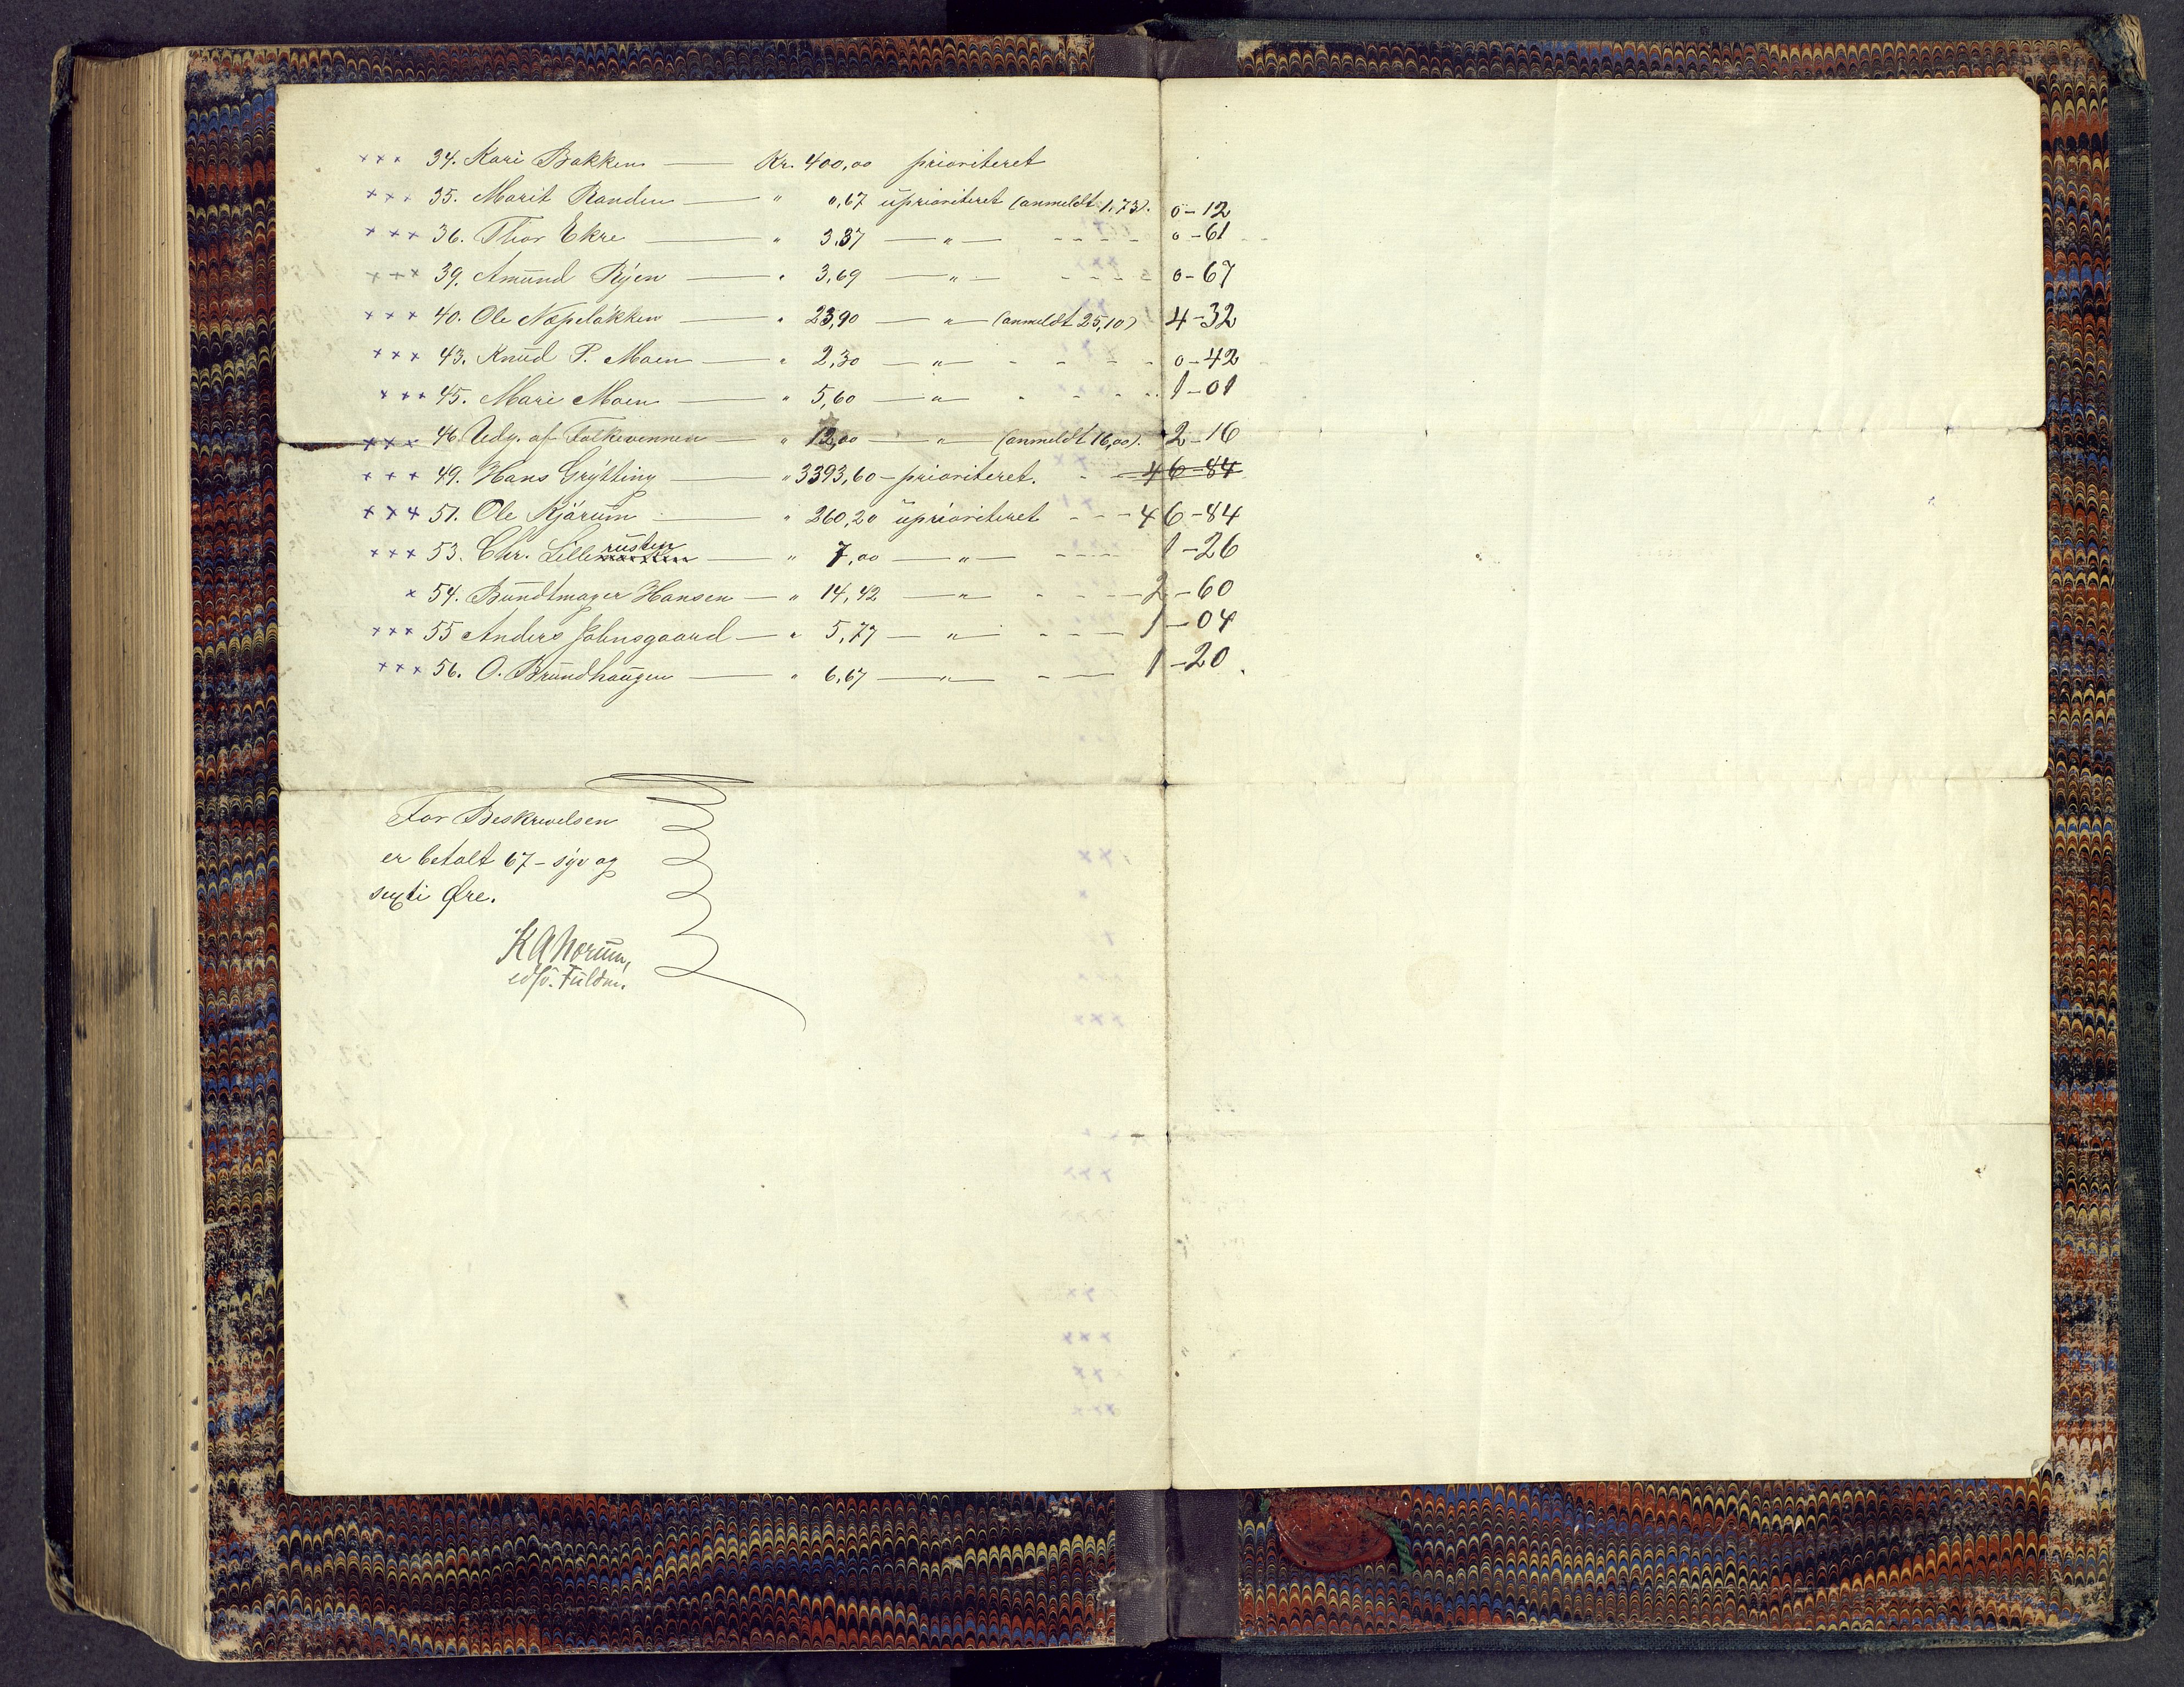 ××× 34. Kari Bakken — Kr. 400,00 prioriteret
××× 35. Marit Randen — " 0,67 uprioriteret (anmeldt 1,73). 0-12
××× 36. Thor Ekre — " 3,37 — " — 0-61
××× 39. Amund Ryen — " 3,69 — " — 0-67
××× 40. Ole Næpeløkken — " 23,90 — " — (anmeldt 25,10) 4-32
××× 43. Knud P. Moen — " 2,30 — " — 0-42
××× 45. Mari Moen — " 5,60 — " — 1-01
××× 46. Udg. af Folkevennen — " 12,00 — " — (anmeldt 16,00). 2-16
××× 49. Hans Grytting — " 3393,60 — prioriteret. 46-84
××× 51. Ole Kjørum — " 260,20 uprioriteret — 46-84
××× 53. Chr. Lillerusten — " 7,00 — " — 1-26
× 54. Bundtmager Hansen — " 14,42 — " — 2-60
××× 55 Anders Jahnsgaard — " 5,77 — " — 1-04
××× 56. O. Brundhaugen — " 6,67 — " — 1-20.
For Beskrivelsen
er betalt 67 - syv og
sexti Øre.
K A Norum,
edsv. Fuldm.